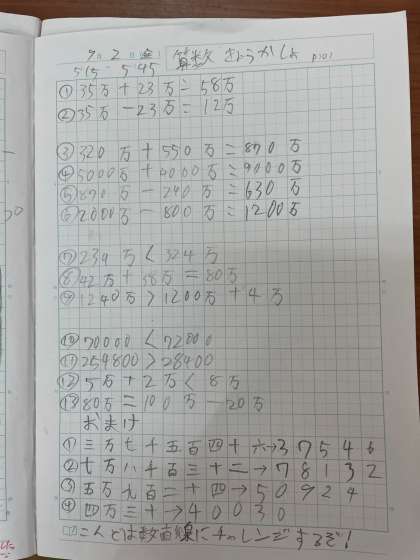 9月2日(金) 算数 きょうかしょ P101
515 - 545
① 35万 + 23万 = 58万
② 35万 - 23万 = 12万
③ 320万 + 550万 = 870万
④ 5000万 + 4000万 = 9000万
⑤ 870万 - 240万 = 630万
⑥ 2000万 - 800万 = 1200万
⑦ 234万 < 324万
⑧ 42万 + 38万 = 80万
⑨ 1240万 > 1200万 + 4万
⑩ 70000 < 72000
⑪ 254800 > 28400
⑫ 5万 + 2万 < 8万
⑬ 80万 = 100万 - 20万
おまけ
① 三万七千五百四十六→37546
② 七万八千百三十二→78132
③ 五万九百二十四→50924
④ 四万三十→40030
こんどは数直線にチャレンジするぞ!